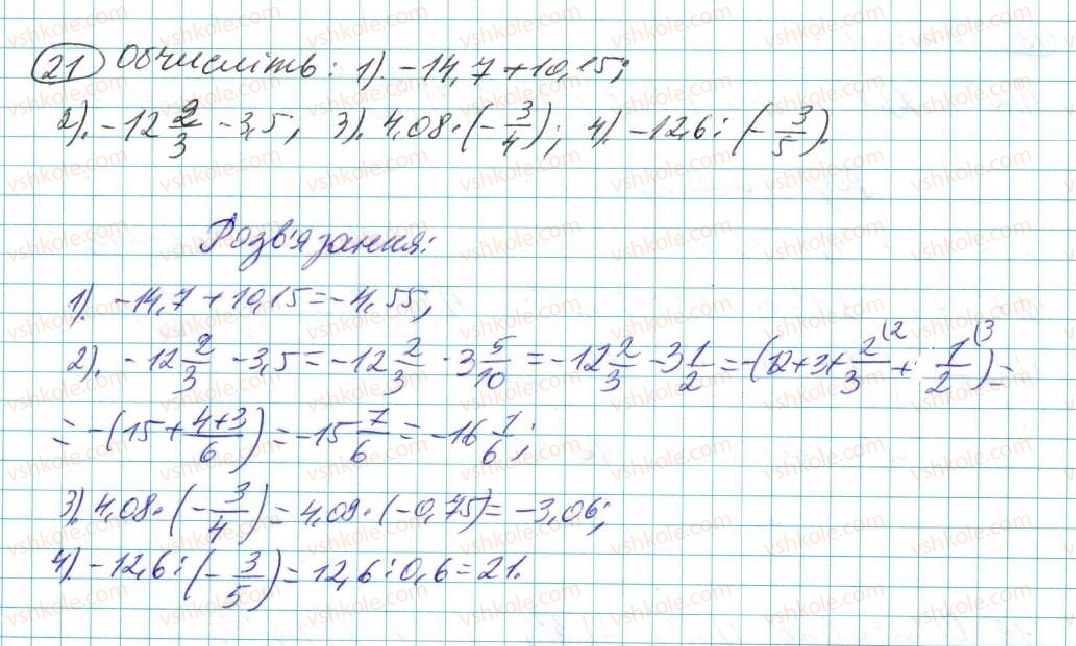 21 Обчисліть: 1). -14,7+10,15;
2). -12 2/3 - 3,5; 3). 4,08·(-3/4); 4). -12,6:(-3/5).
Розв'язання:
1). -14,7+10,15=-4,55;
2). -12 2/3 - 3,5 = -12 2/3 - 3 5/10 = -12 2/3 - 3 1/2 = -(12+3+2/3(2 + 1/2(3) =
= -(15 + (4+3)/6) = -15 7/6 = -16 1/6;
3). 4,08·(-3/4) = 4,08·(-0,75) = -3,06;
4). -12,6:(-3/5) = 12,6:0,6 = 21.